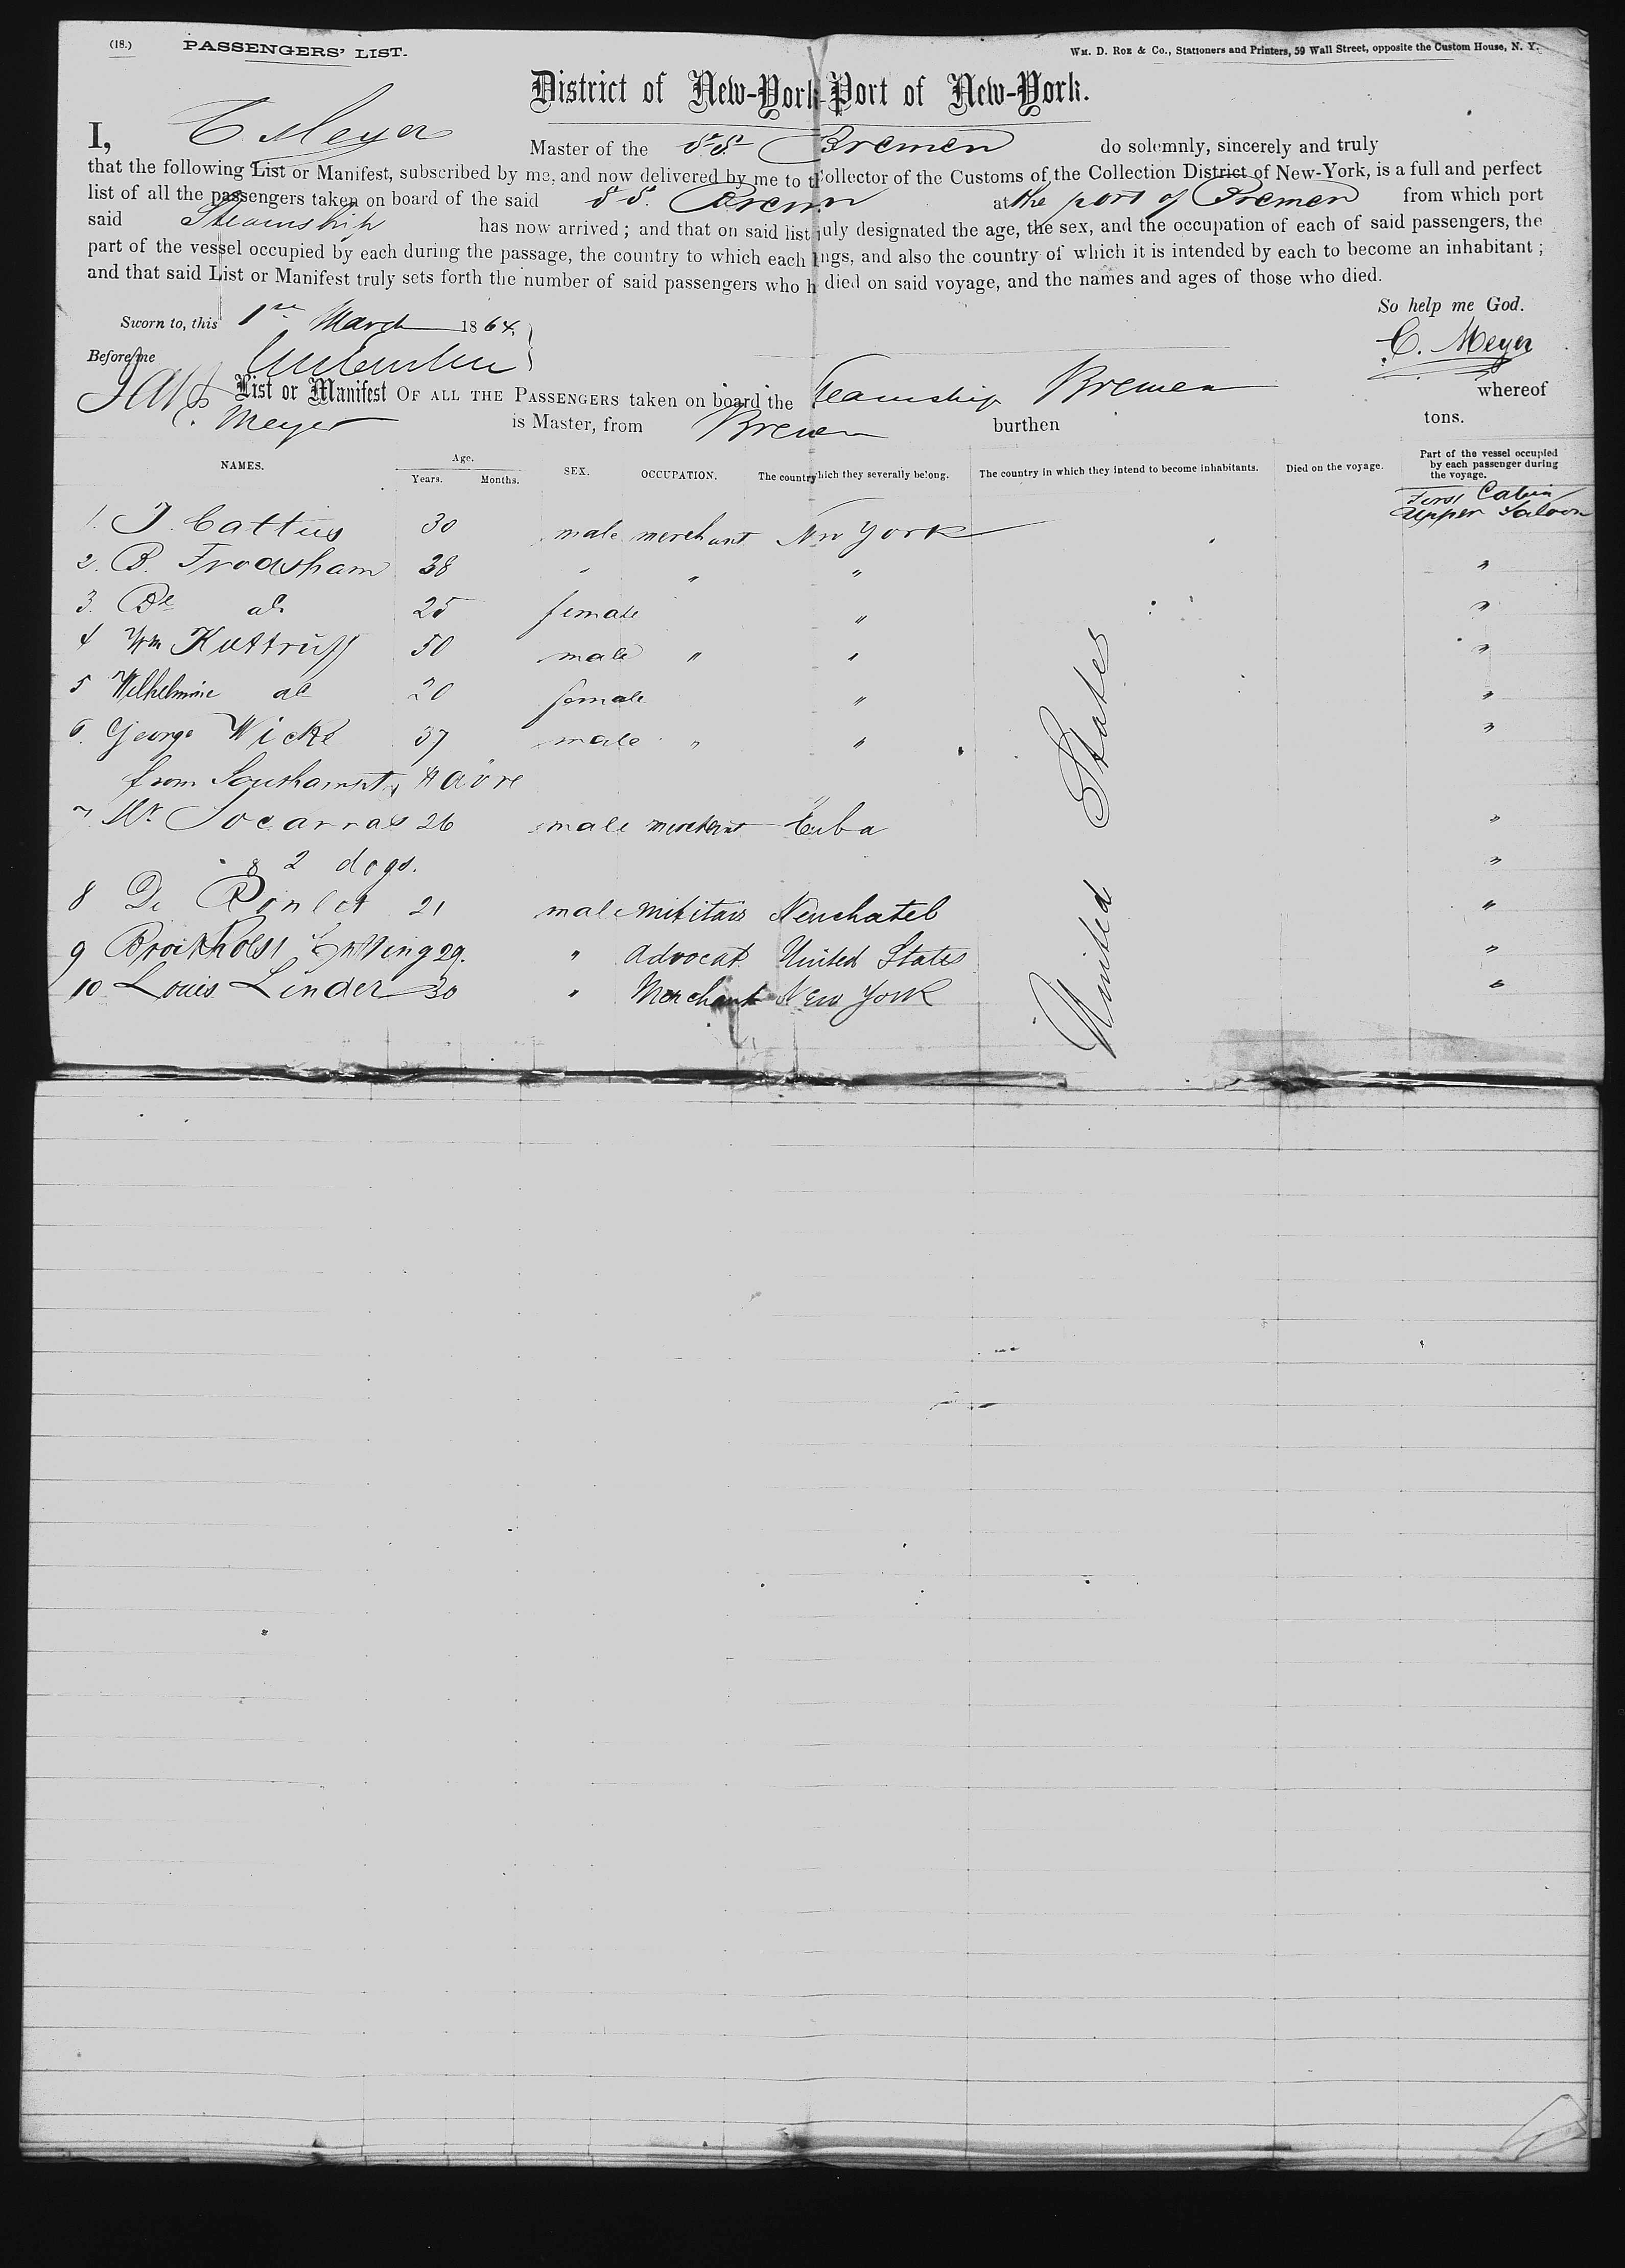 (18.) PASSENGERS' LIST. Wm. D. Roe & Co., Stationers and Printers, 59 Wall Street, opposite the Custom House, N. Y.
District of New-York Port of New-York.
I, C. Meyer Master of the S.S. Bremen do solemnly, sincerely and truly
that the following List or Manifest, subscribed by me, and now delivered by me to t ollector of the Customs of the Collection District of New-York, is a full and perfect
list of all the passengers taken on board of the said S S. Bremen at the port of Bremen from which port
said Steamship has now arrived; and that on said list uly designated the age, the sex, and the occupation of each of said passengers, the
part of the vessel occupied by each during the passage, the country to which each ngs, and also the country of which it is intended by each to become an inhabitant;
and that said List or Manifest truly sets forth the number of said passengers who h died on said voyage, and the names and ages of those who died.
So help me God.
Sworn to, this 1st March 1864.
C. Meyer
Before me
List or Manifest OF ALL THE PASSENGERS taken on board the Steamship Bremen whereof
C. Meyer is Master, from Bremen burthen tons.
NAMES. Age. Years. Months. SEX. OCCUPATION. The country hich they severally belong. The country in which they intend to become inhabitants. Died on the voyage. Part of the vessel occupied by each passenger during the voyage.
First Cabin
Upper Saloon
1. J. Cattius 30 male merchant New York
2. B. Frodsham 38 " " " "
3. De do 25 female " "
4 Wm Kattruff 50 male " " "
5 Wilhelmine do 20 female " "
6. George Wicke 37 male " " "
from Southampt & Havre
7. Mr. Socarras 26 male merchant Cuba "
& 2 dogs. "
8 De 21 male militair Neuchatel "
9 Brockholst Cutting 29. " Advocat United States "
10 Louis Linder 30 " Merchant New York "
United States